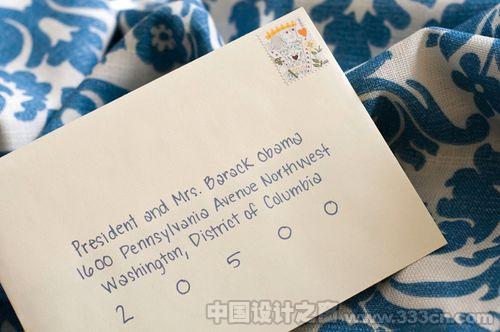 President and Mrs. Barack Obama
1600 Pennsylvania Avenue Northwest
Washington, District of Columbia
2 0 5 0 0
中国设计之窗
www.333cn.com